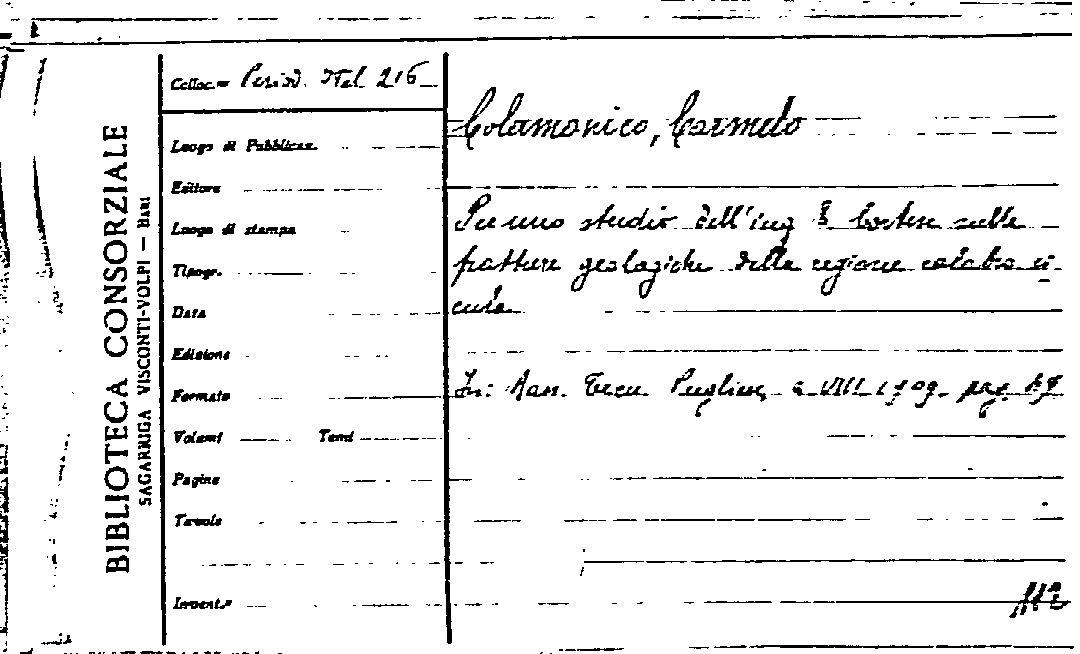 BIBLIOTECA CONSORZIALE
SAGARRIGA VISCONTI-VOLPI — BARI
Colloc.ne Period. Ital 216
Luogo di Pubblicaz.
Editore
Luogo di stampa
Tipogr.
Data
Edizione
Formato
Volumi Tomi
Pagine
Tavole
Invent.°
Colamonico, Carmelo
Per uno studio dell'ing Cortese sulle
fratture geologiche della regione calabro si
cula
In: Rass. Tecn. Pugliese, a. VIII 1909. pag.